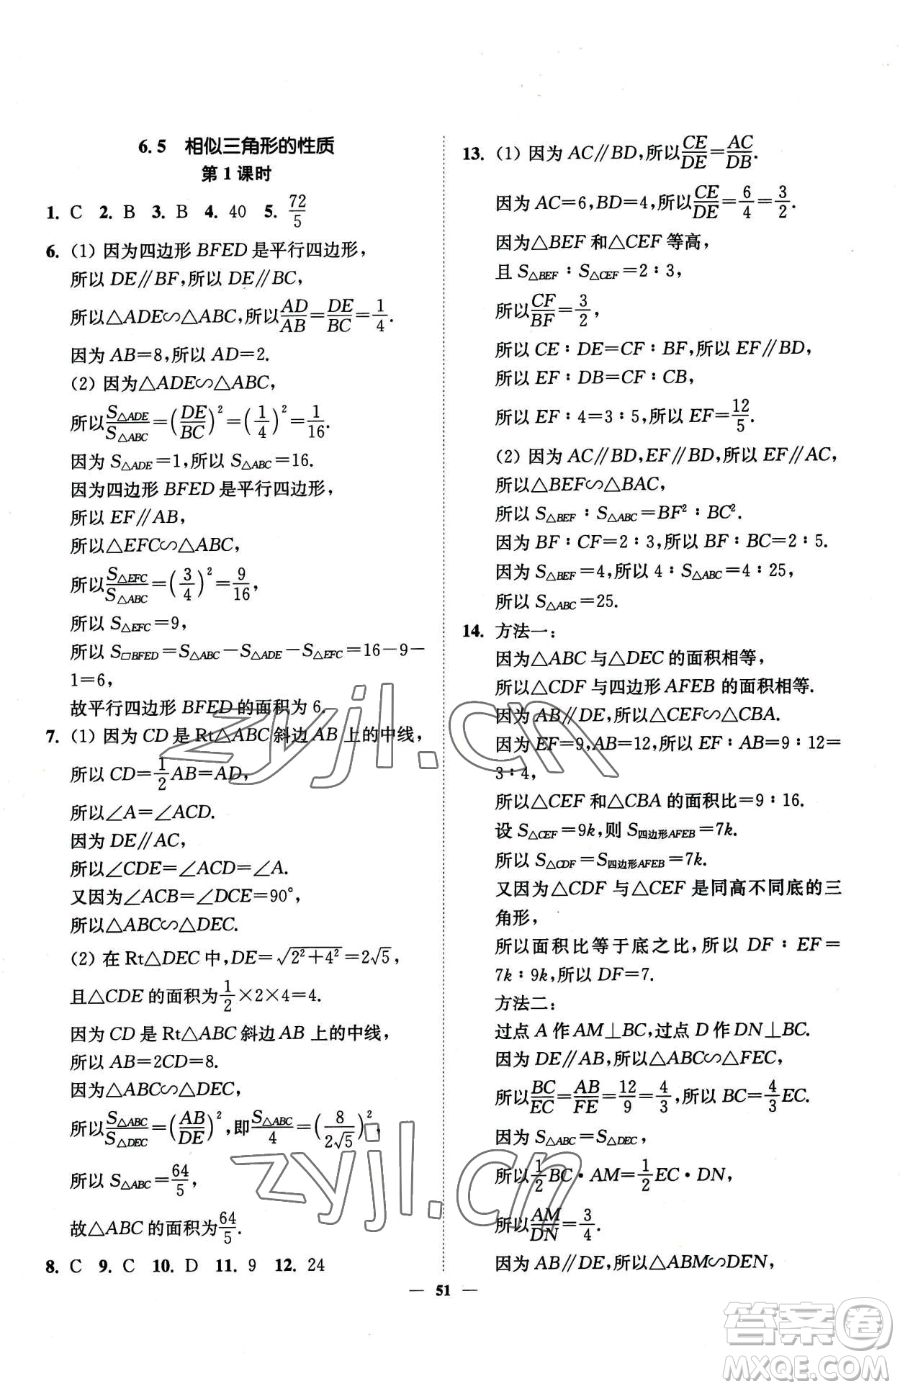 6.5 相似三角形的性质
第1课时
1. C 2. B 3. B 4. 40 5. 72/5
6. (1) 因为四边形 BFED 是平行四边形,
所以 DE∥BF,所以 DE∥BC,
所以△ADE∽△ABC,所以AD/AB=DE/BC=1/4.
因为 AB=8,所以 AD=2.
(2) 因为△ADE∽△ABC,
所以S△ADE/S△ABC=(DE/BC)²=(1/4)²=1/16.
因为 S△ADE=1,所以 S△ABC=16.
因为四边形 BFED 是平行四边形,
所以 EF∥AB,
所以△EFC∽△ABC,
所以S△EFC/S△ABC=(3/4)²=9/16,
所以 S△EFC=9,
所以 S□BFED=S△ABC-S△ADE-S△EFC=16-9-
1=6,
故平行四边形 BFED 的面积为 6.
7. (1) 因为 CD 是 Rt△ABC 斜边 AB 上的中线,
所以 CD=1/2AB=AD,
所以∠A=∠ACD.
因为 DE∥AC,
所以∠CDE=∠ACD=∠A.
又因为∠ACB=∠DCE=90°,
所以△ABC∽△DEC.
(2) 在 Rt△DEC 中,DE=√(2²+4²)=2√5,
且△CDE 的面积为1/2×2×4=4.
因为 CD 是 Rt△ABC 斜边 AB 上的中线,
所以 AB=2CD=8.
因为△ABC∽△DEC,
所以S△ABC/S△DEC=(AB/DE)²,即S△ABC/4=(8/2√5)²,
所以 S△ABC=64/5,
故△ABC 的面积为64/5.
8. C 9. C 10. D 11. 9 12. 24
13. (1) 因为 AC∥BD,所以CE/DE=AC/DB.
因为 AC=6,BD=4,所以CE/DE=6/4=3/2.
因为△BEF 和△CEF 等高,
且 S△BEF∶S△CEF=2∶3,
所以CF/BF=3/2,
所以 CE∶DE=CF∶BF,所以 EF∥BD,
所以 EF∶DB=CF∶CB,
所以 EF∶4=3∶5,所以 EF=12/5.
(2) 因为 AC∥BD,EF∥BD,所以 EF∥AC,
所以△BEF∽△BAC,
所以 S△BEF∶S△ABC=BF²∶BC².
因为 BF∶CF=2∶3,所以 BF∶BC=2∶5.
因为 S△BEF=4,所以 4∶S△ABC=4∶25,
所以 S△ABC=25.
14. 方法一:
因为△ABC 与△DEC 的面积相等,
所以△CDF 与四边形 AFEB 的面积相等.
因为 AB∥DE,所以△CEF∽△CBA.
因为 EF=9,AB=12,所以 EF∶AB=9∶12=
3∶4,
所以△CEF 和△CBA 的面积比=9∶16.
设 S△CEF=9k,则 S四边形AFEB=7k.
所以 S△CDF=S四边形AFEB=7k.
又因为△CDF 与△CEF 是同高不同底的三
角形,
所以面积比等于底之比,所以 DF∶EF=
7k∶9k,所以 DF=7.
方法二:
过点 A 作 AM⊥BC,过点 D 作 DN⊥BC.
因为 DE∥AB,所以△ABC∽△FEC,
所以BC/EC=AB/FE=12/9=4/3,所以 BC=4/3EC.
因为 S△ABC=S△DEC,
所以1/2BC·AM=1/2EC·DN,
所以AM/DN=3/4.
因为 AB∥DE,所以△ABM∽△DEN,
— 51 —
zyjl.cn
zyjl.cn
答案圈
MXQE.COM